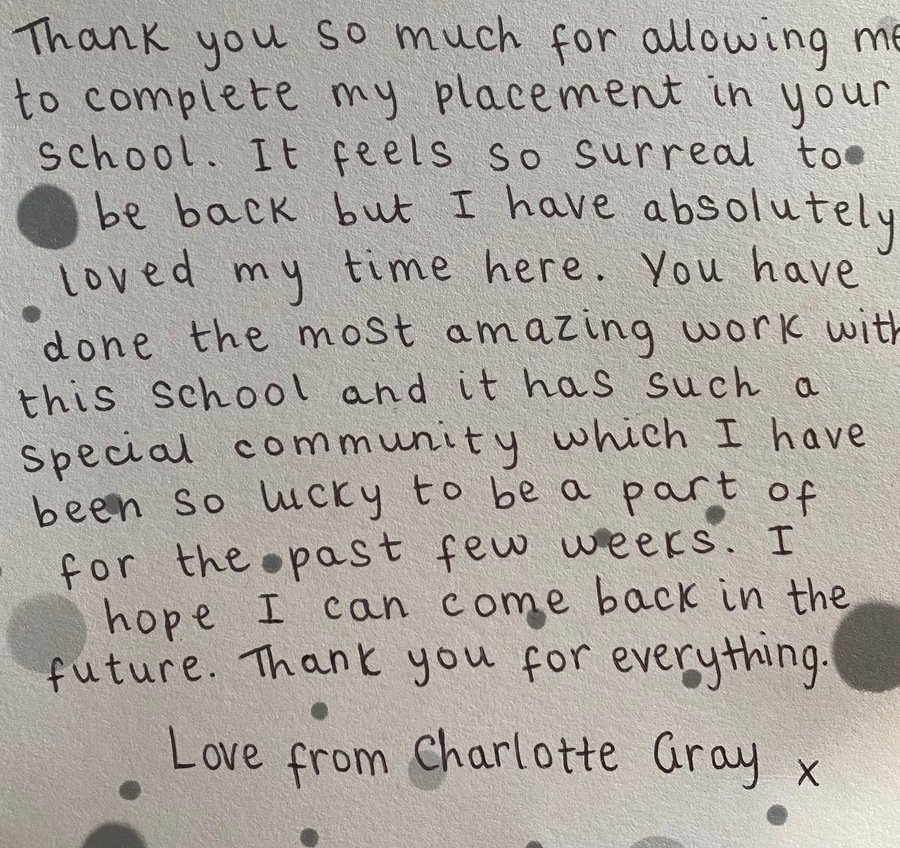 Thank you so much for allowing me
to complete my placement in your
school. It feels so surreal to
be back but I have absolutely
loved my time here. You have
done the most amazing work with
this school and it has such a
special community which I have
been so lucky to be a part of
for the past few weeks. I
hope I can come back in the
future. Thank you for everything.
Love from Charlotte Gray x